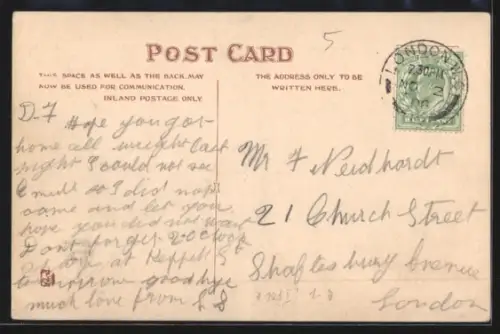 POST CARD
THIS SPACE AS WELL AS THE BACK MAY
NOW BE USED FOR COMMUNICATION.
INLAND POSTAGE ONLY
THE ADDRESS ONLY TO BE
WRITTEN HERE.
5
LONDON
2.30
D. F Hope you got
home all wright last
night I could not see
so I did not
come and let you
hope you did not wait
Dont forget 2 oclock
at
goodbye
much love from
Mr F Neidhardt
21 Church Street
Shaftesbury Avenue
London